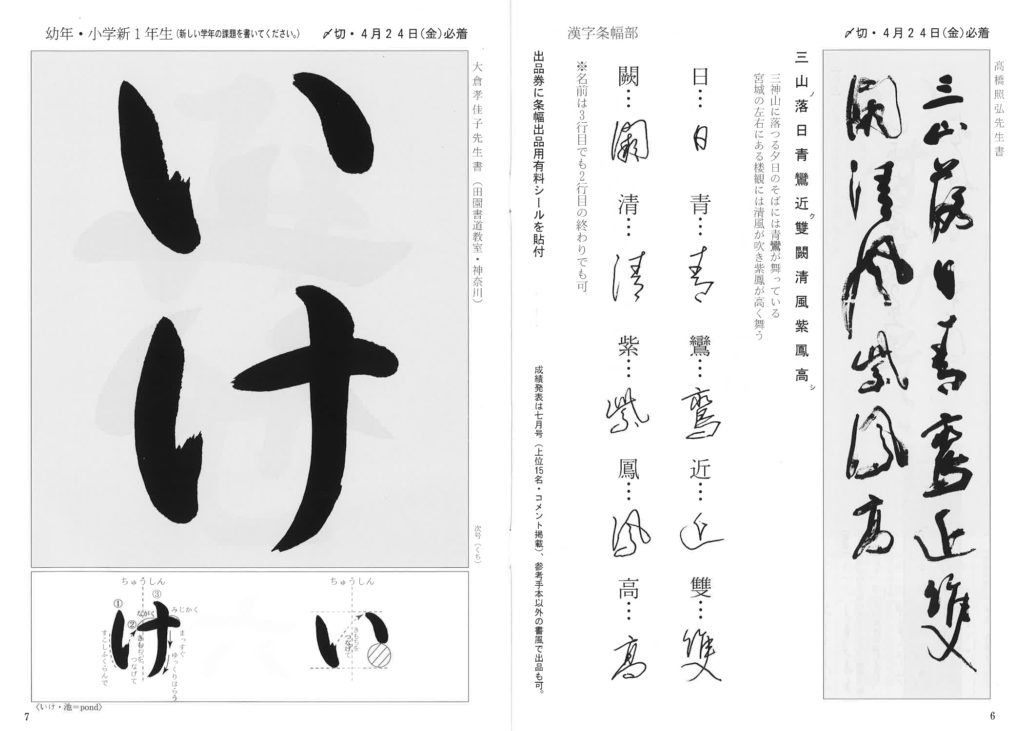 〆切・4月24日(金)必着
高橋照弘先生書
三山落日青鸞近雙
闕清風紫鳳高
三山ノ落日青鸞近ク雙闕清風紫鳳高シ
三神山に落つる夕日のそばには青鸞が舞っている
宮城の左右にある楼観には清風が吹き紫鳳が高く舞う
漢字条幅部
日…日 青…青 鸞…鸞 近…近 雙…雙
闕…闕 清…清 紫…紫 鳳…鳳 高…高
※名前は3行目でも2行目の終わりでも可
出品券に条幅出品用有料シールを貼付
成績発表は七月号(上位15名・コメント掲載)、参考手本以外の書風で出品も可。
6
幼年・小学新1年生(新しい学年の課題を書いてください。)
〆切・4月24日(金)必着
大倉孝佳子先生書(田園書道教室・神奈川)
いけ
次号(くち)
ちゅうしん
い
きもちをつなげて
ちゅうしん
け
①
②
③
ながく
みじかく
きもちをつなげて
すこしふくらんで
まっすぐ
ゆっくりはらう
《いけ・池=pond》
7